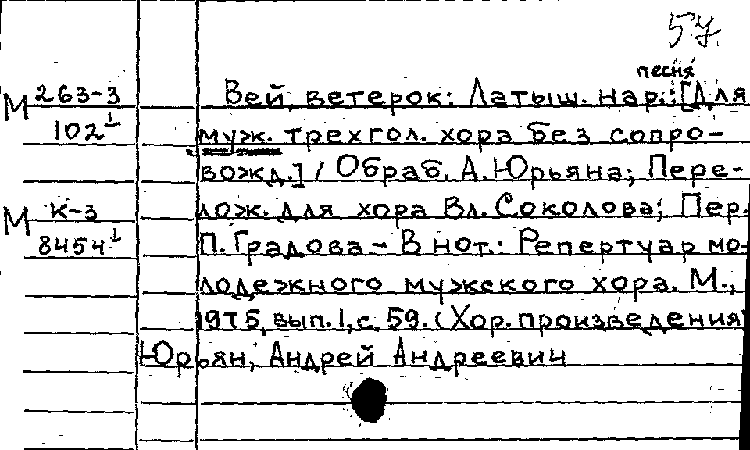 57.
песня
М 263-3 Вей, ветерок: Латыш. нар.: [Для
102¹ муж. трехгол. хора без сопро-
вожд.] / Обраб. А. Юрьяна; Пере-
М К-3 лож. для хора Вл. Соколова; Пер.
8454¹ П. Градова – В нот.: Репертуар мо-
лодежного мужского хора. М.,
1975, вып. 1, с. 59. (Хор. произведения)
Юрьян, Андрей Андреевич